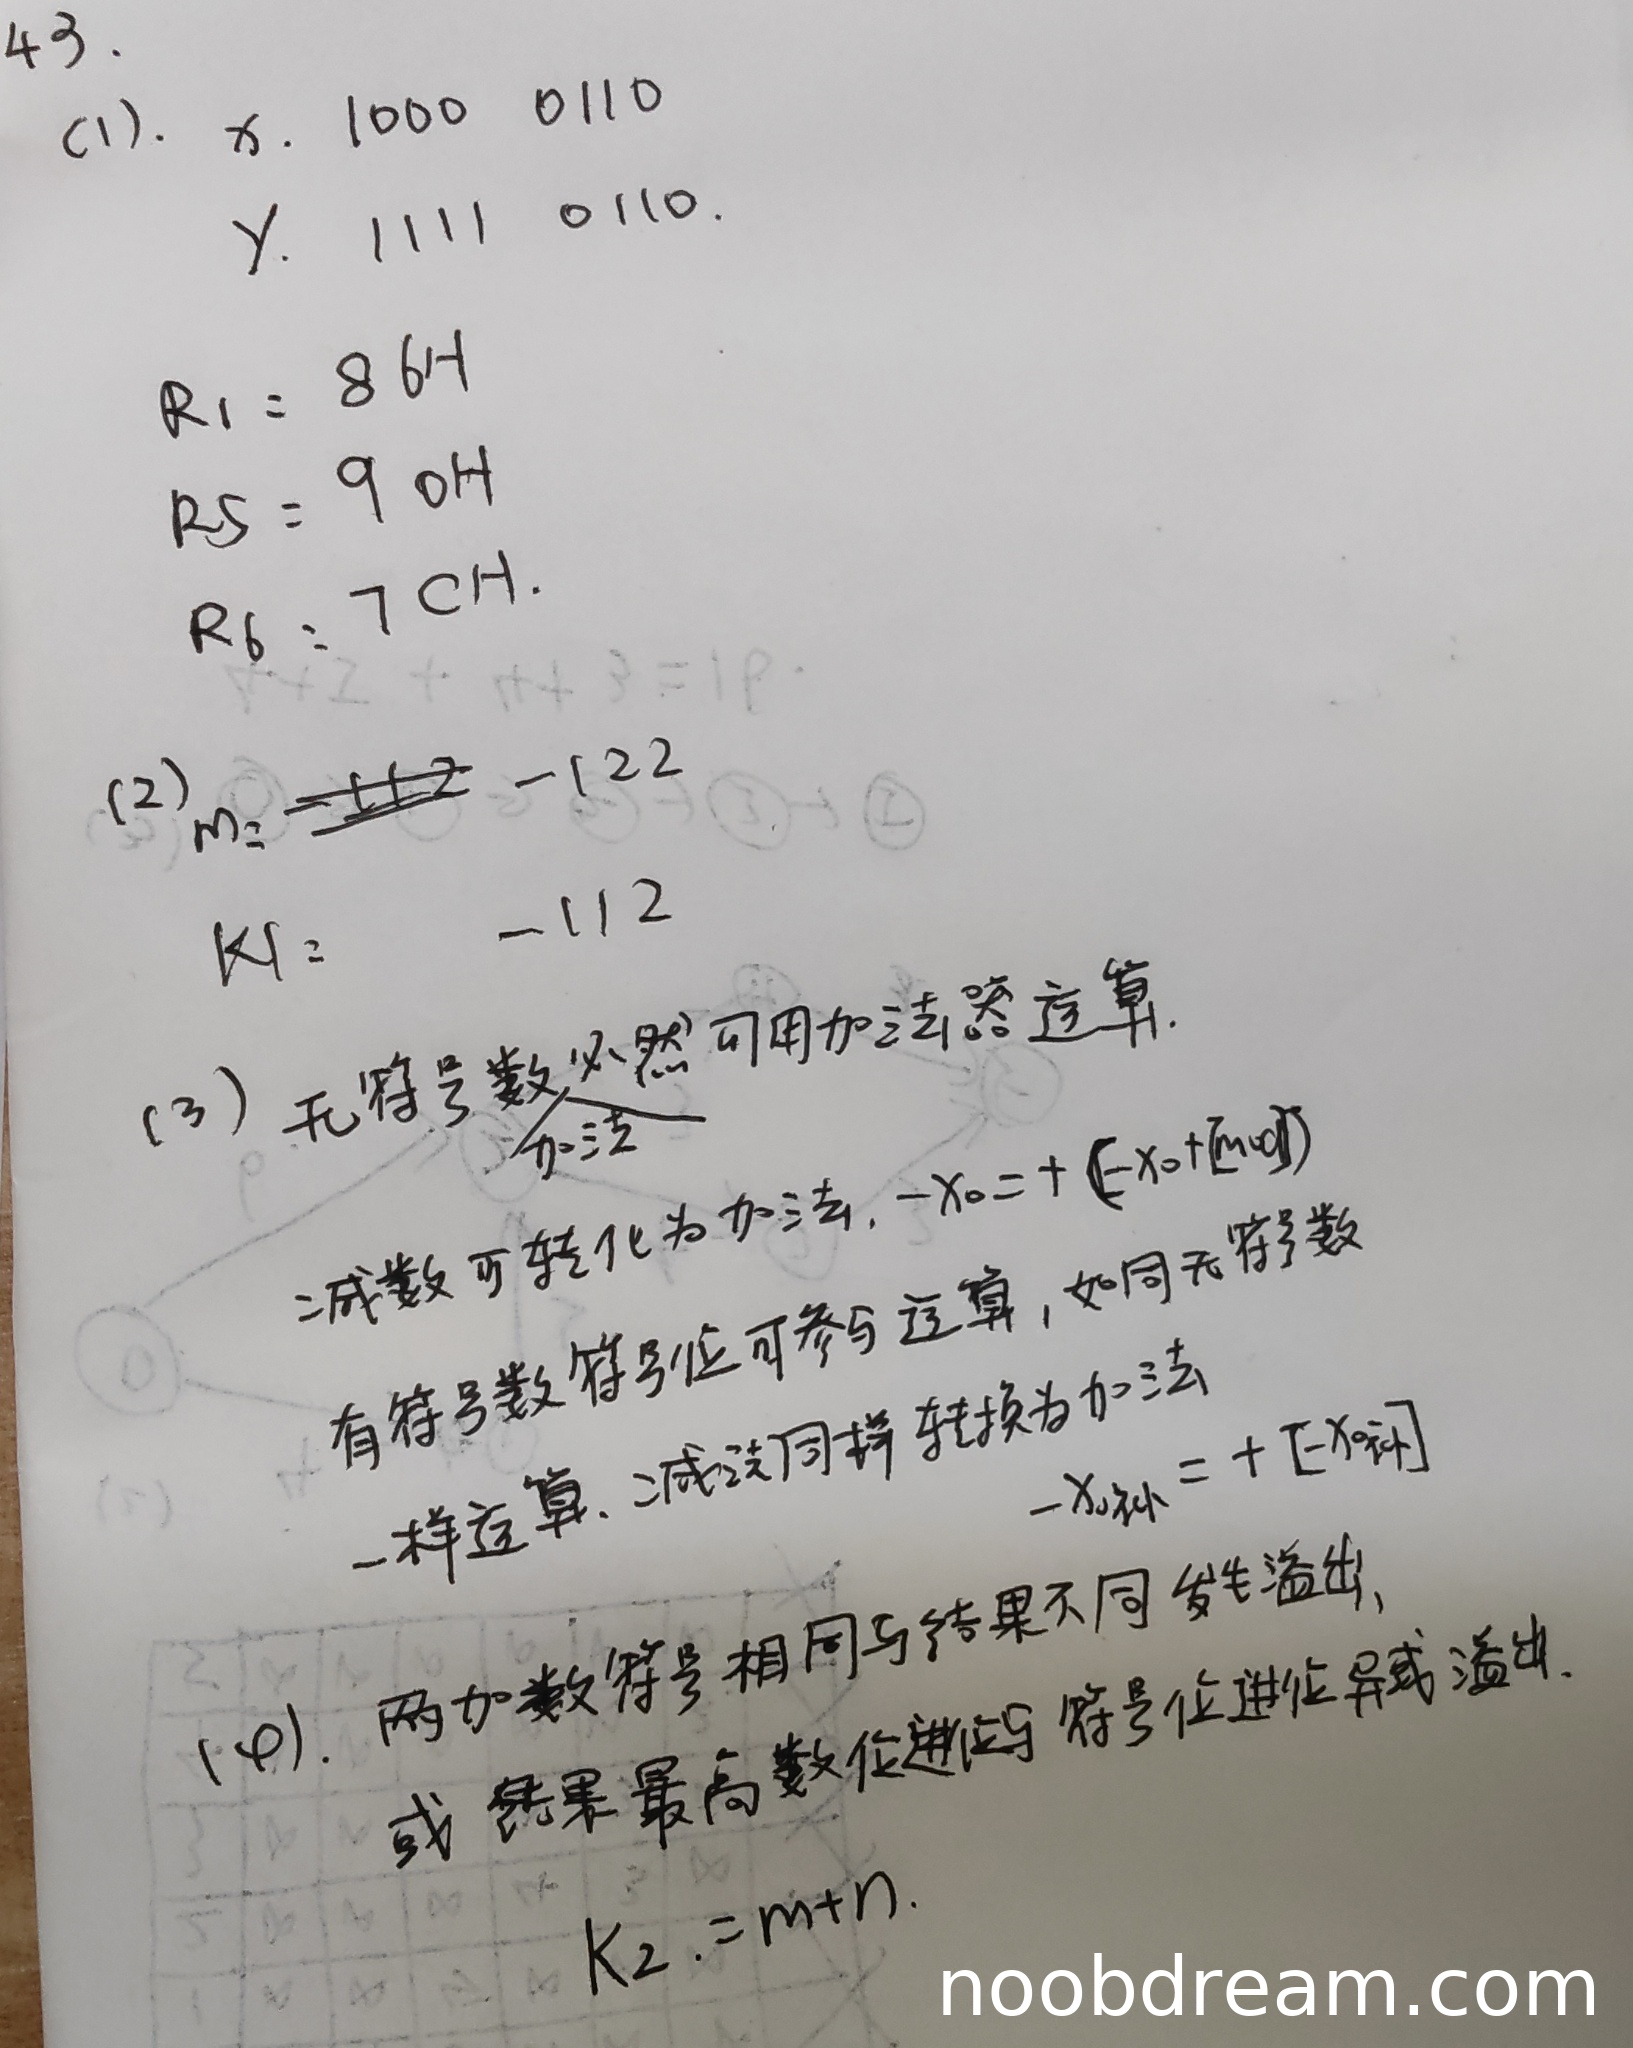 43.
(1). x. 1000 0110
Y. 1111 0110.
R1 = 86H
R5 = 90H
R6 = 7CH.
(2) m = -122
K1 = -112
(3) 无符号数必然可用加法器运算.
加法
减数可转化为加法, -x0 = + (-x0 + [mod])
有符号数符号位可参与运算, 如同无符号数
一样运算. 减法同样转换为加法
-x0补 = + [-x0补]
(4). 两加数符号相同与结果不同发生溢出,
或结果最高数位进位与符号位进位异或溢出.
K2. = m+n.
noobdream.com